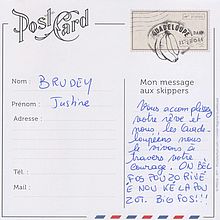 Post Card
GUADELOUPE
Nom : BRUDEY
Prénom : Justine
Adresse :
Tél. :
Mail :
Mon message
aux skippers
Vous accomplissez
votre rêve et
nous les Guade-
loupéens nous
le vivons à
travers votre
courage. ON BÈL
FOS POU ZO RIVÉ
E NOU KÉ LA POU
ZOT. BIG FOS!!!